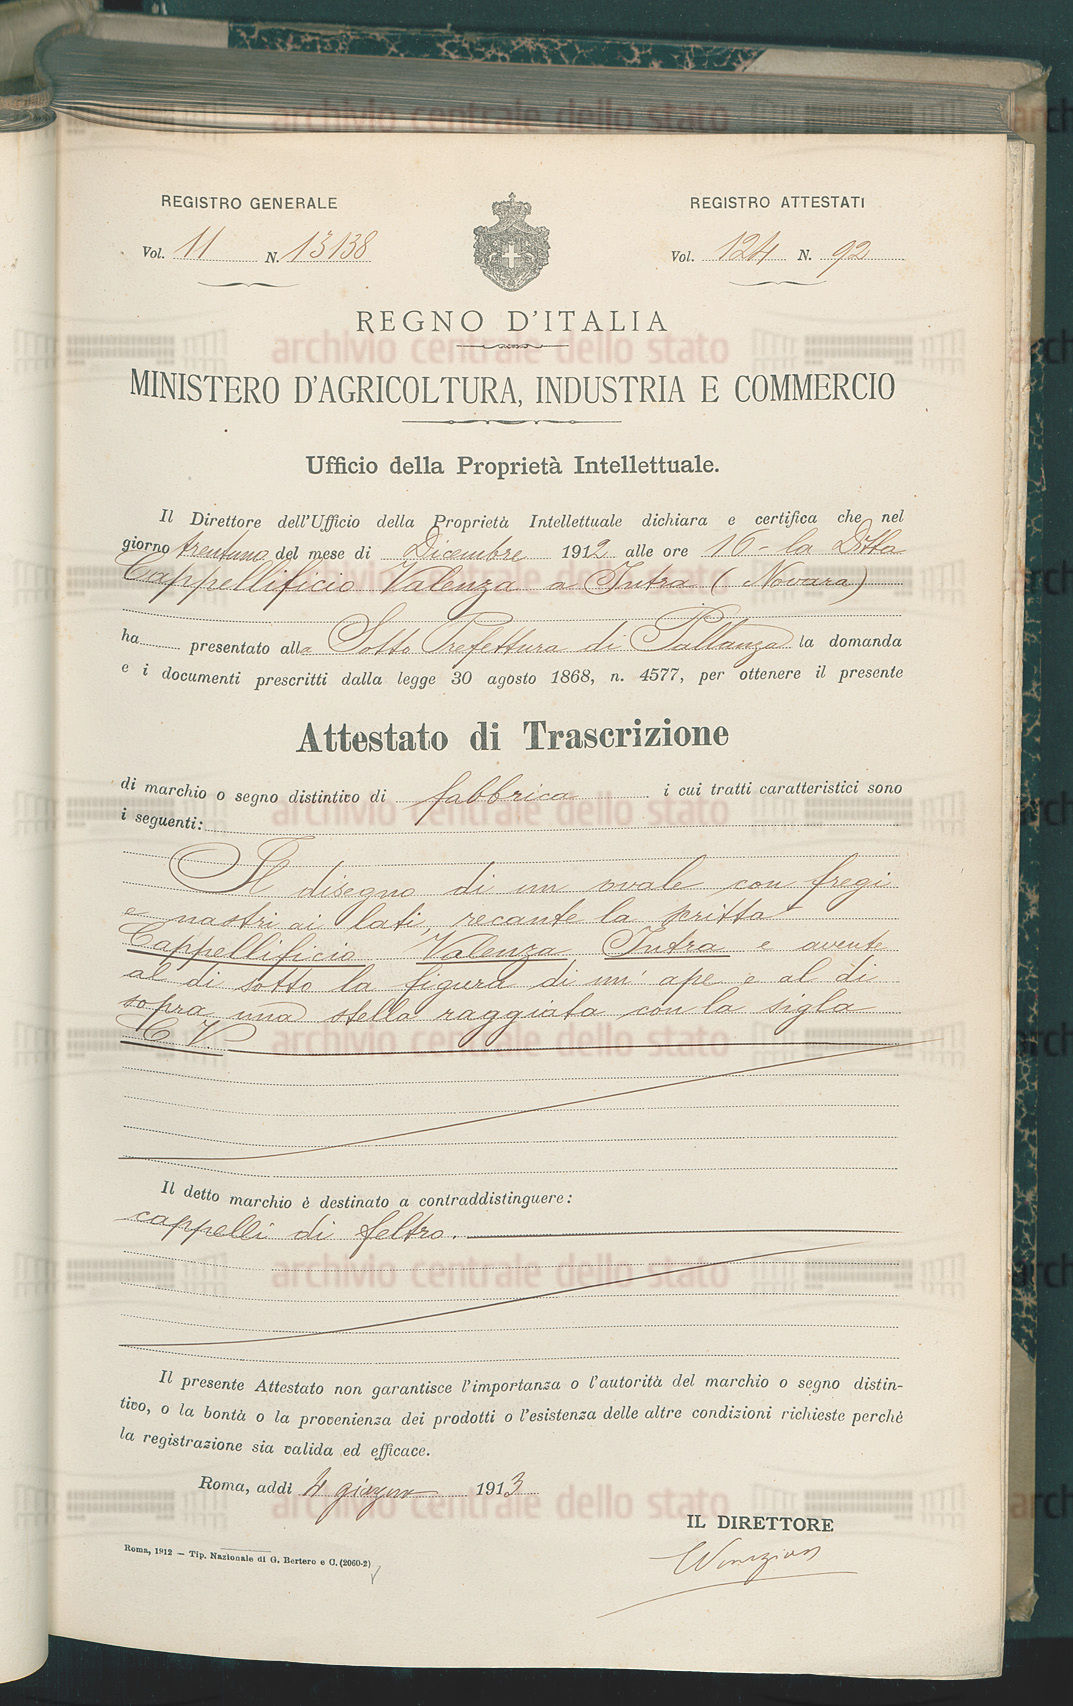 REGISTRO GENERALE
Vol. 11 N. 13138
REGISTRO ATTESTATI
Vol. 124 N. 92
REGNO D'ITALIA
MINISTERO D'AGRICOLTURA, INDUSTRIA E COMMERCIO
Ufficio della Proprietà Intellettuale.
Il Direttore dell'Ufficio della Proprietà Intellettuale dichiara e certifica che nel
giorno trentuno del mese di Dicembre 1912 alle ore 16 - la Ditta
Cappellificio Valenza a Intra (Novara)
ha presentato alla Sotto Prefettura di Pallanza la domanda
e i documenti prescritti dalla legge 30 agosto 1868, n. 4577, per ottenere il presente
Attestato di Trascrizione
di marchio o segno distintivo di fabbrica i cui tratti caratteristici sono
i seguenti:
Il disegno di un ovale con fregi
e nastri ai lati, recante la scritta
Cappellificio Valenza Intra e avente
al di sotto la figura di un' ape e al di
sopra una stella raggiata con la sigla
C V.
Il detto marchio è destinato a contraddistinguere:
cappelli di feltro.
Il presente Attestato non garantisce l'importanza o l'autorità del marchio o segno distin-
tivo, o la bontà o la provenienza dei prodotti o l'esistenza delle altre condizioni richieste perchè
la registrazione sia valida ed efficace.
Roma, addì 4 giugno 1913
IL DIRETTORE
Venezian
Roma, 1912 — Tip. Nazionale di G. Bertero e C. (2060-2)
archivio centrale dello stato
archivio centrale dello stato
archivio centrale dello stato
archivio centrale dello stato
archivio centrale dello stato
archivio centrale dello stato
archivio centrale dello stato